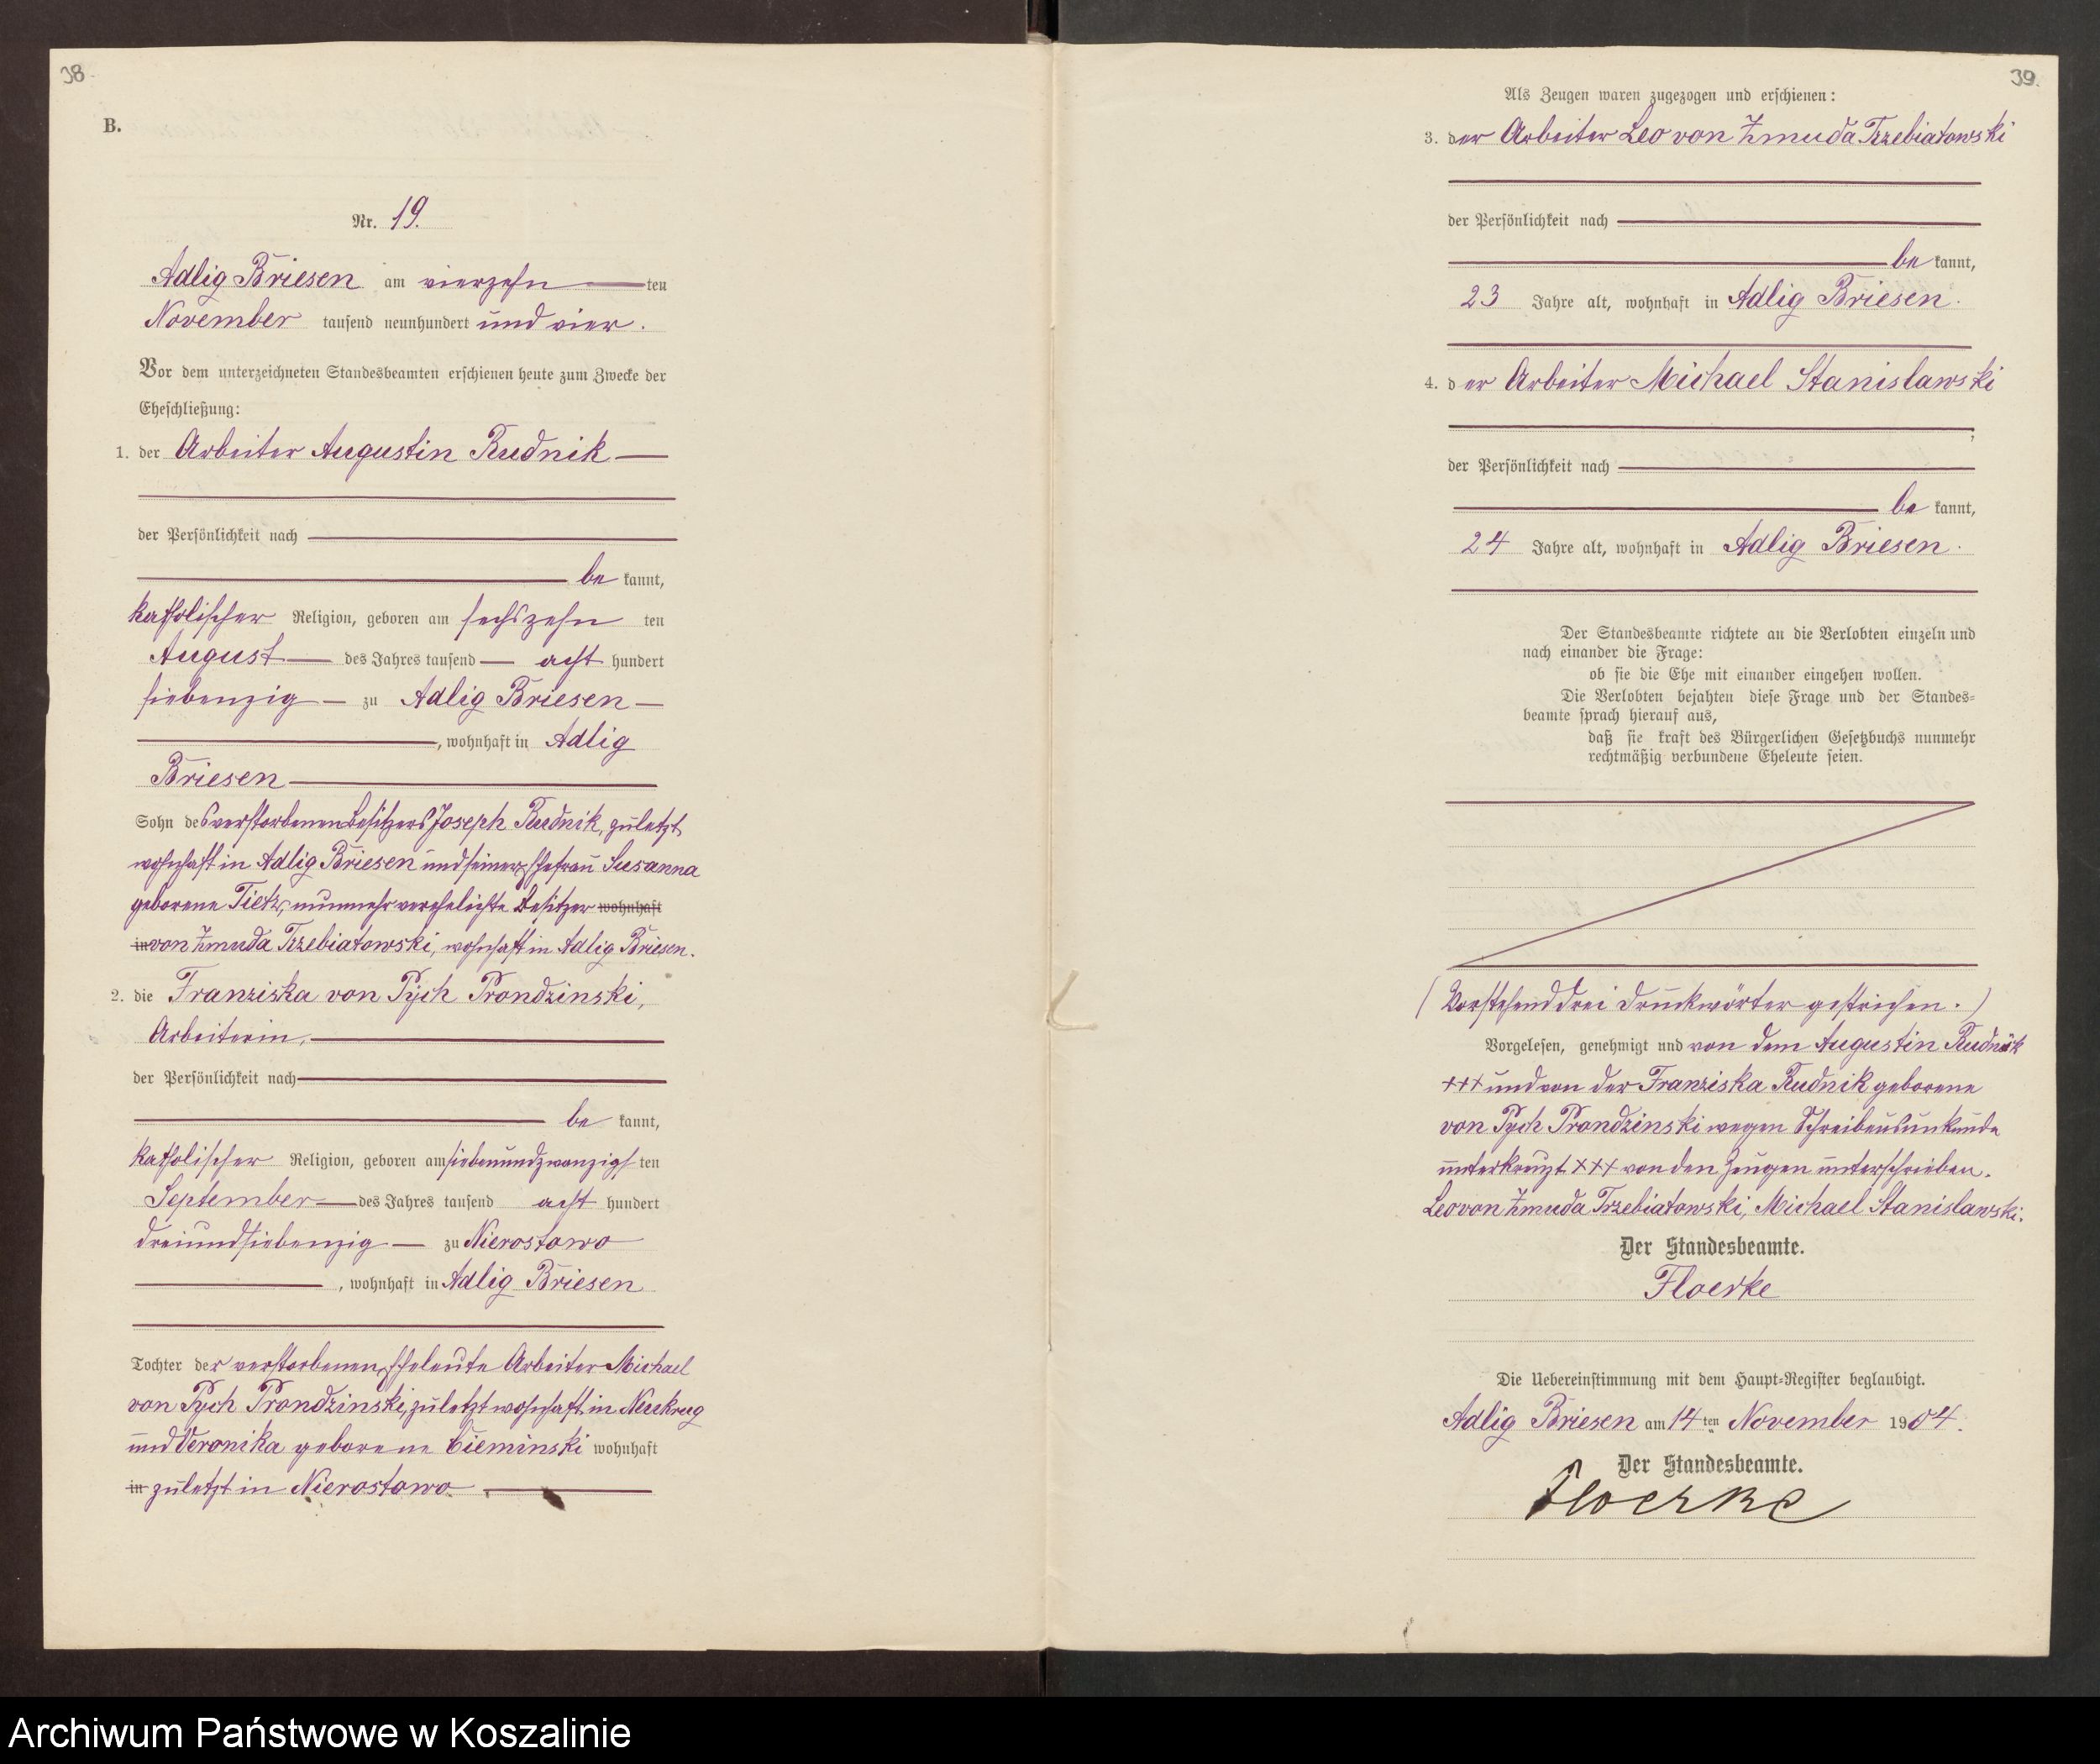 38.
B.
Nr. 19.
Adlig Briesen am vierzehn ten
November tausend neunhundert und vier.
Vor dem unterzeichneten Standesbeamten erschienen heute zum Zwecke der
Eheschließung:
1. der Arbeiter Augustin Rudnik
der Persönlichkeit nach
be kannt,
katholischer Religion, geboren am sechszehn ten
August des Jahres tausend acht hundert
siebenzig zu Adlig Briesen
, wohnhaft in Adlig
Briesen
Sohn des verstorbenen Besitzers Joseph Rudnik, zuletzt
wohnhaft in Adlig Briesen und seiner Ehefrau Susanna
geborene Tietz, nunmehr verehelichte Besitzer wohnhaft
in von Zmuda Trzebiatowski, wohnhaft in Adlig Briesen.
2. die Franziska von Pych Prondzinski,
Arbeiterin,
der Persönlichkeit nach
be kannt,
katholischer Religion, geboren am siebenundzwanzigsten
September des Jahres tausend acht hundert
dreiundsiebenzig zu Nierostawo
, wohnhaft in Adlig Briesen
Tochter der verstorbenen Eheleute Arbeiter Michael
von Pych Prondzinski, zuletzt wohnhaft in Neukrug
und Veronika geborene Cieminski wohnhaft
in zuletzt in Nierostawo
39.
Als Zeugen waren zugezogen und erschienen:
3. der Arbeiter Leo von Zmuda Trzebiatowski
der Persönlichkeit nach
be kannt,
23 Jahre alt, wohnhaft in Adlig Briesen.
4. der Arbeiter Michael Stanislawski
;
der Persönlichkeit nach
be kannt,
24 Jahre alt, wohnhaft in Adlig Briesen.
Der Standesbeamte richtete an die Verlobten einzeln und
nach einander die Frage:
ob sie die Ehe mit einander eingehen wollen.
Die Verlobten bejahten diese Frage und der Standes=
beamte sprach hierauf aus,
daß sie kraft des Bürgerlichen Gesetzbuchs nunmehr
rechtmäßig verbundene Eheleute seien.
(Vorstehend drei Druckwörter gestrichen.)
Vorgelesen, genehmigt und von dem Augustin Rudnik
+++ und von der Franziska Rudnik geborene
von Pych Prondzinski wegen Schreibensunkunde
unterkreuzt +++ von den Zeugen unterschrieben.
Leo von Zmuda Trzebiatowski, Michael Stanislawski.
Der Standesbeamte.
Floerke
Die Uebereinstimmung mit dem Haupt=Register beglaubigt.
Adlig Briesen am 14ten November 1904.
Der Standesbeamte.
Floerke
Archiwum Państwowe w Koszalinie